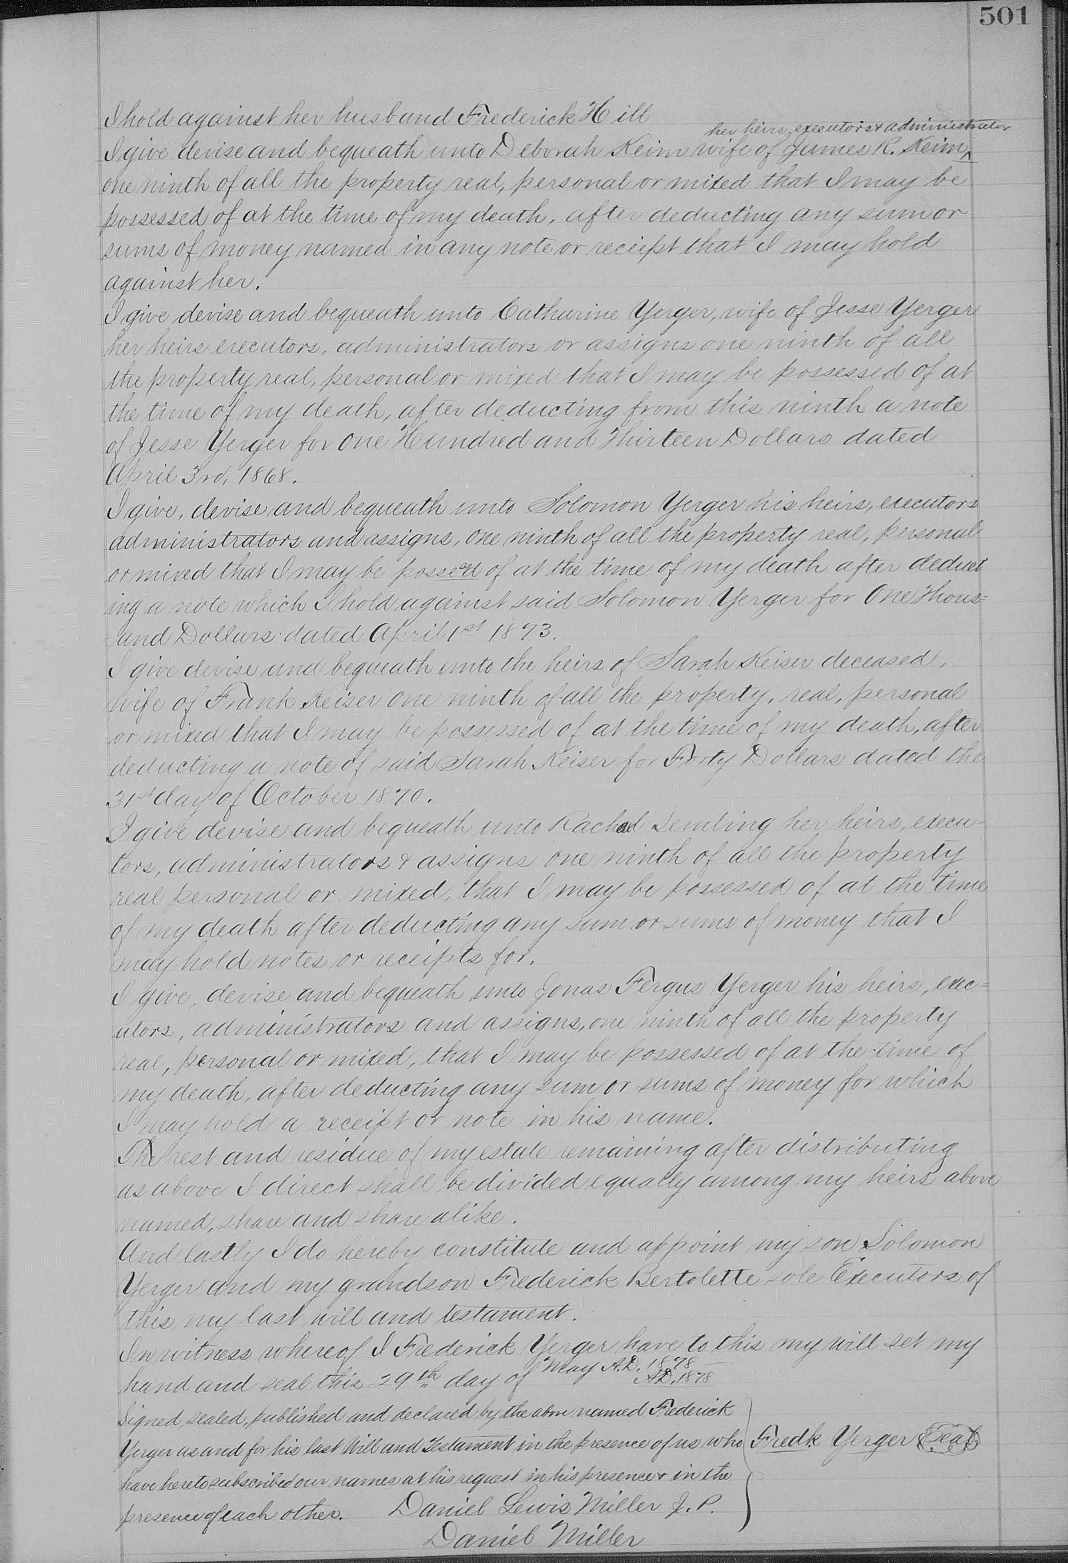 501
I hold against her husband Frederick Hill
her heirs, executors & administrator
I give devise and bequeath unto Deborah Keim wife of James K. Keim ^
one ninth of all the property real, personal or mixed that I may be
possessed of at the time of my death, after deducting any sum or
sums of money named in any note or reciept that I may hold
against her.
I give devise and bequeath unto Catharine Yerger, wife of Jesse Yerger
her heirs executors, administrators or assigns one ninth of all
the property real, personal or mixed that I may be possessed of at
the time of my death, after deducting from this ninth a note
of Jesse Yerger for One Hundred and Thirteen Dollars dated
April 3rd, 1868.
I give, devise and bequeath unto Solomon Yerger his heirs, executors
administrators and assigns, one ninth of all the property real, personal
or mixed that I may be possed of at the time of my death after deduct
ing a note which I hold against said Solomon Yerger for One Thous=
and Dollars dated April 1st 1873.
I give devise and bequeath unto the heirs of Sarah Keiser deceased,
wife of Frank Keiser one ninth of all the property, real, personal
or mixed that I may be possessed of at the time of my death, after
deducting a note of said Sarah Keiser for Forty Dollars dated the
31st day of October 1870.
I give devise and bequeath unto Rachael her heirs, execu-
tors, administrators & assigns one ninth of all the property
real personal or mixed, that I may be possessed of at the time
of my death after deducting any sum or sums of money that I
may hold notes or receipts for.
I give, devise and bequeath unto Jonas Fergus Yerger his heirs, exec=
utors, administrators and assigns, one ninth of all the property
real, personal or mixed, that I may be possessed of at the time of
my death, after deducting any sum or sums of money for which
I may hold a receipt or note in his name.
The rest and residue of my estate remaining after distributing
as above I direct shall be divided equally among my heirs above
named, share and share alike.
And lastly I do hereby constitute and appoint my son Solomon
Yerger and my grandson Frederick Bertolette sole Executors of
this my last will and testament.
In witness whereof I Frederick Yerger have to this my will set my
hand and seal this 29th day of May A.D. 1878
A.D. 1878
Signed, sealed, published and declared by the above named Frederick
Yerger as and for his last Will and Testament in the presence of us, who
have hereto subscribed our names at his request in his presence & in the
presence of each other.
Fredk Yerger Seal
Daniel Lewis Miller J. P.
Daniel Miller